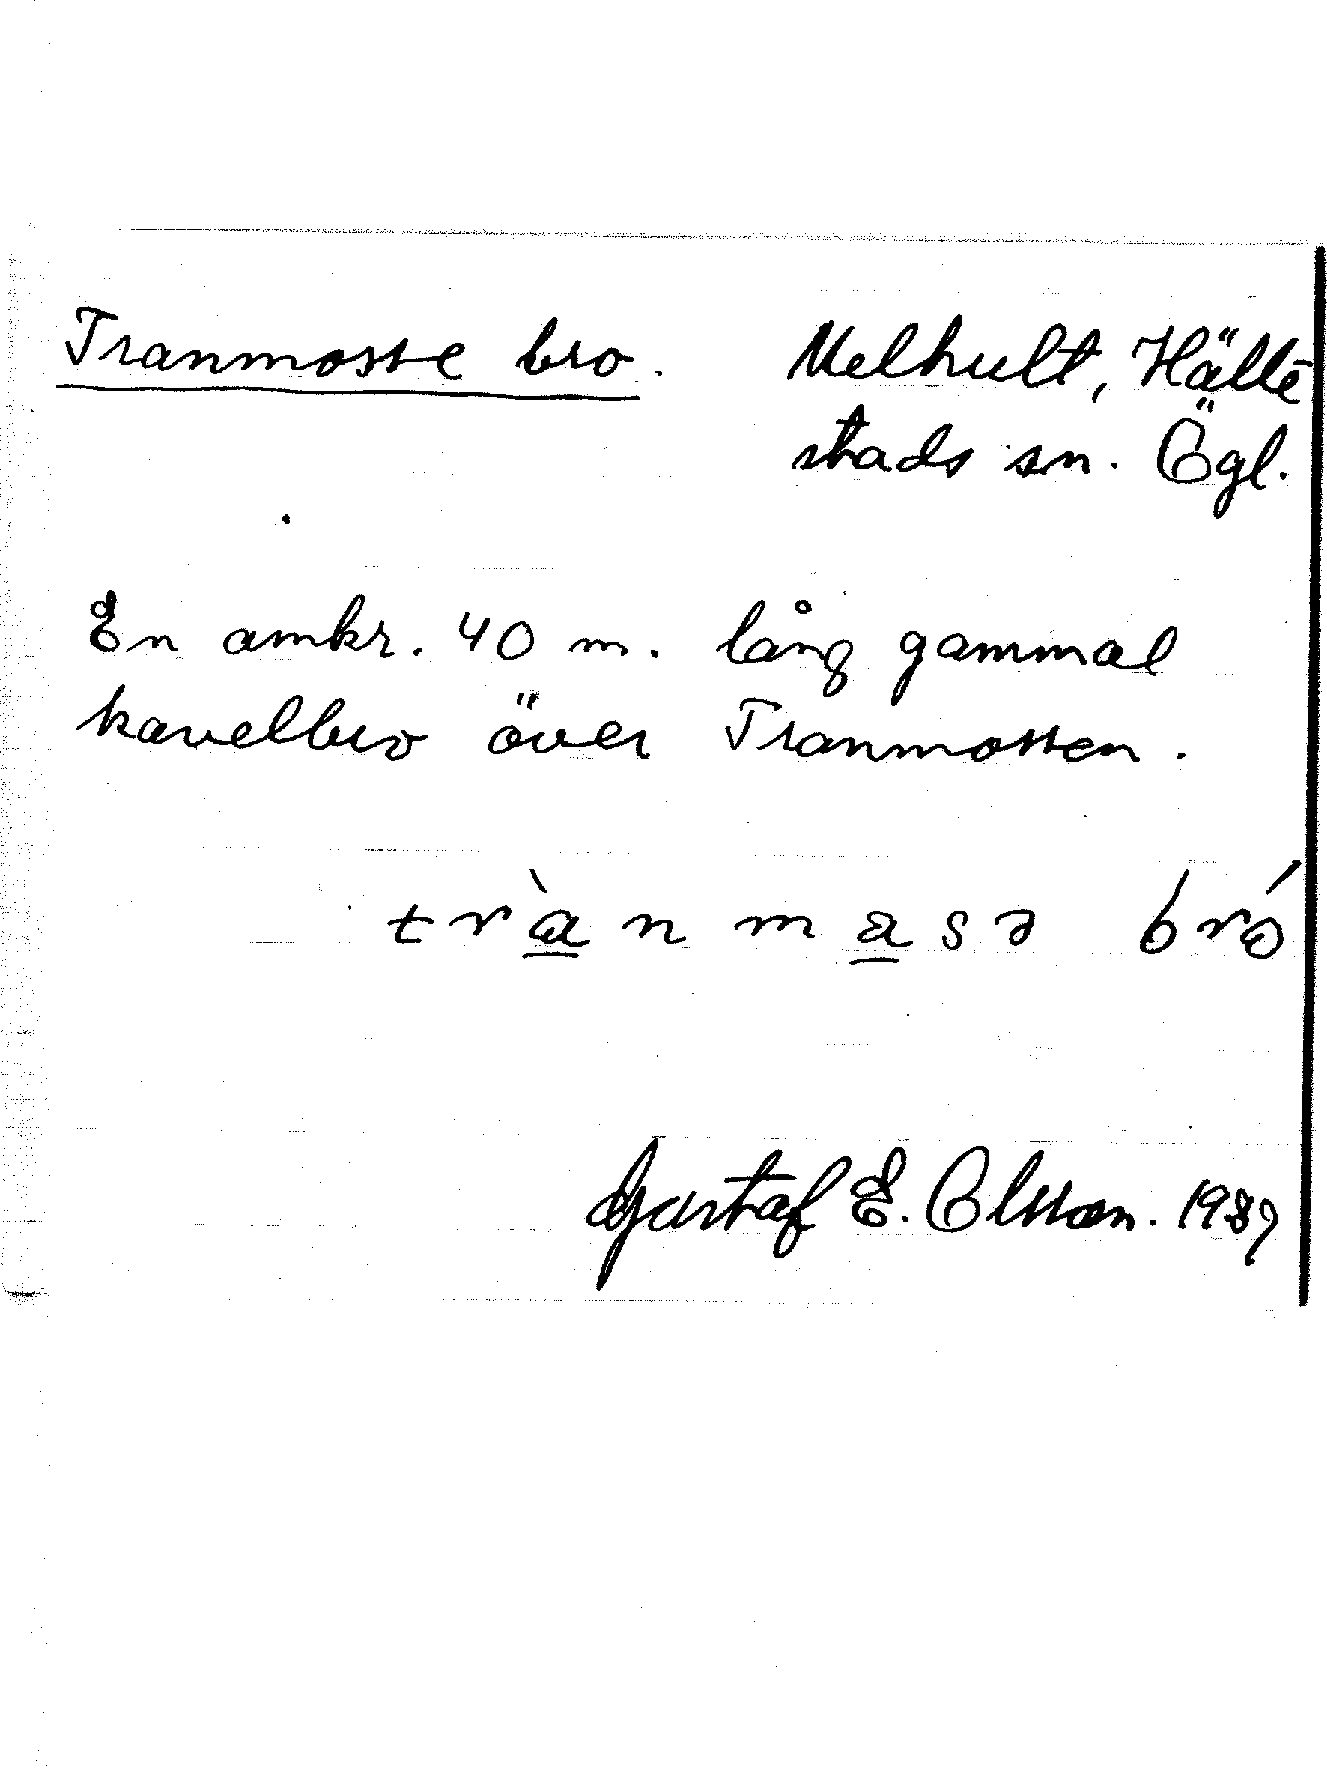 Tranmosse bro. Melhult, Hälle-
stads sn. Ögl.
En omkr. 40 m. lång gammal
kavelbro över Tranmossen.
tràn masə bró
Gustaf E. Olsson. 1989